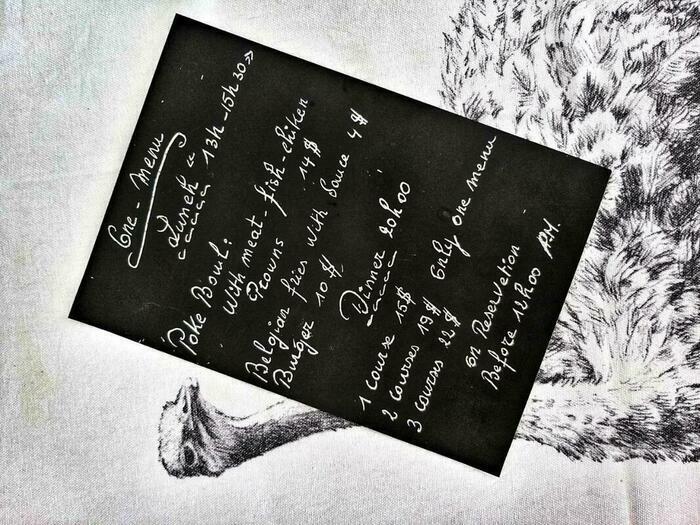 One - Menu
Lunch « 13h - 15h30 »
Poke Bowl:
With meat - fish - chiken
Prowns 14 $
Belgian fries with Sauce 4 $
Burger 10 $
Dinner 20h00
1 course 15$
2 courses 19 $ Only one menu
3 courses 22 $
on Reservation
Before 12h00 P.M.